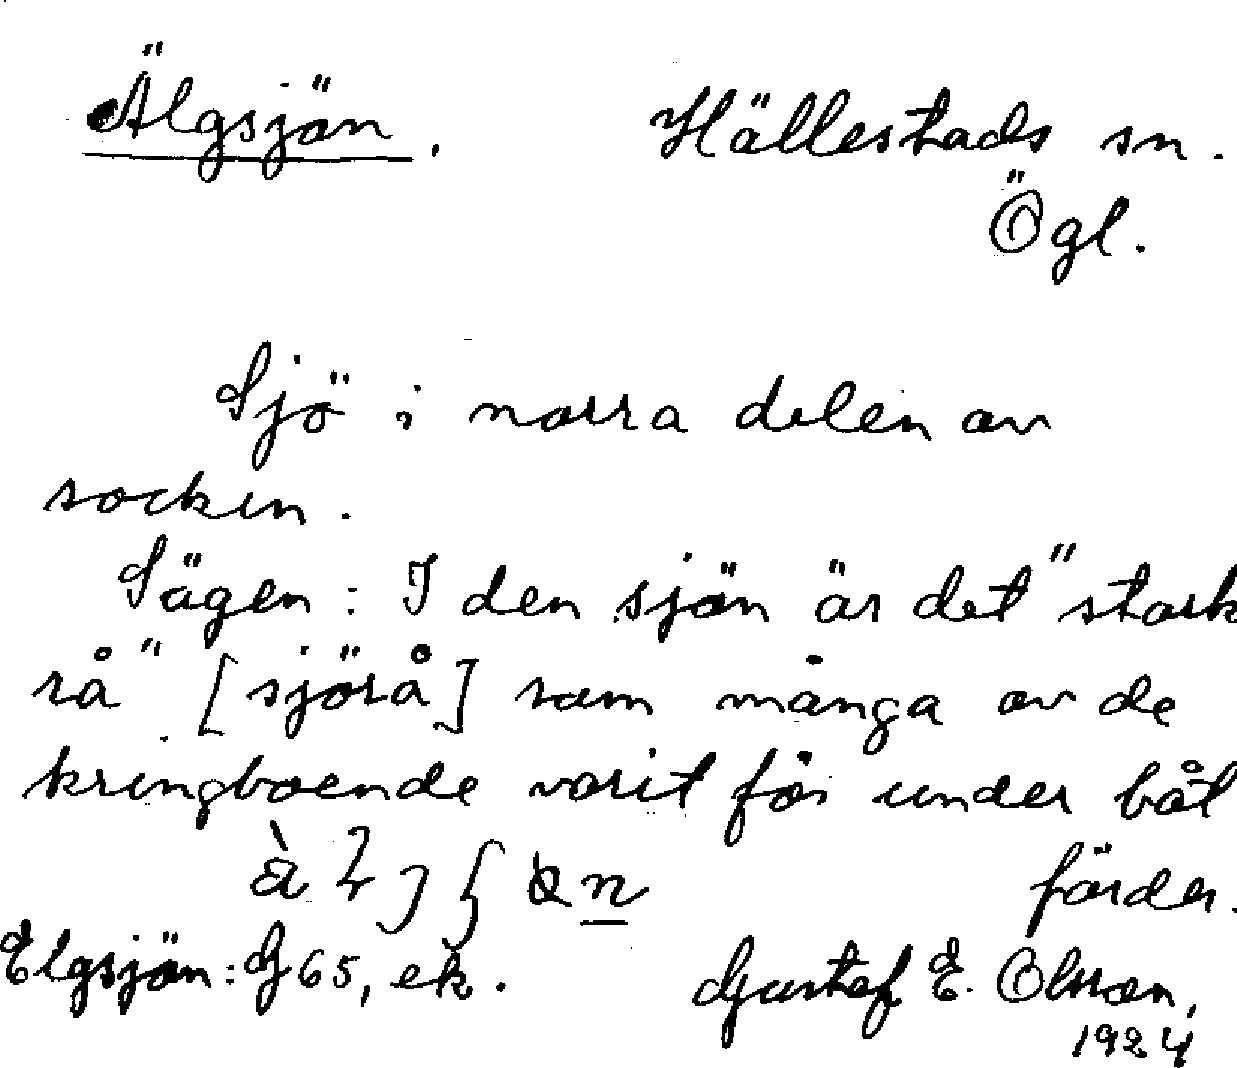 Älgsjön. Hällestads sn.
Ögl.
Sjö i norra delen av
socken.
Sägen: I den sjön är det "stark
rå" [sjörå] som många av de
kringboende varit för under båt
färder.
Elgsjön: G 65, ek. Gustaf E. Olsson,
1924